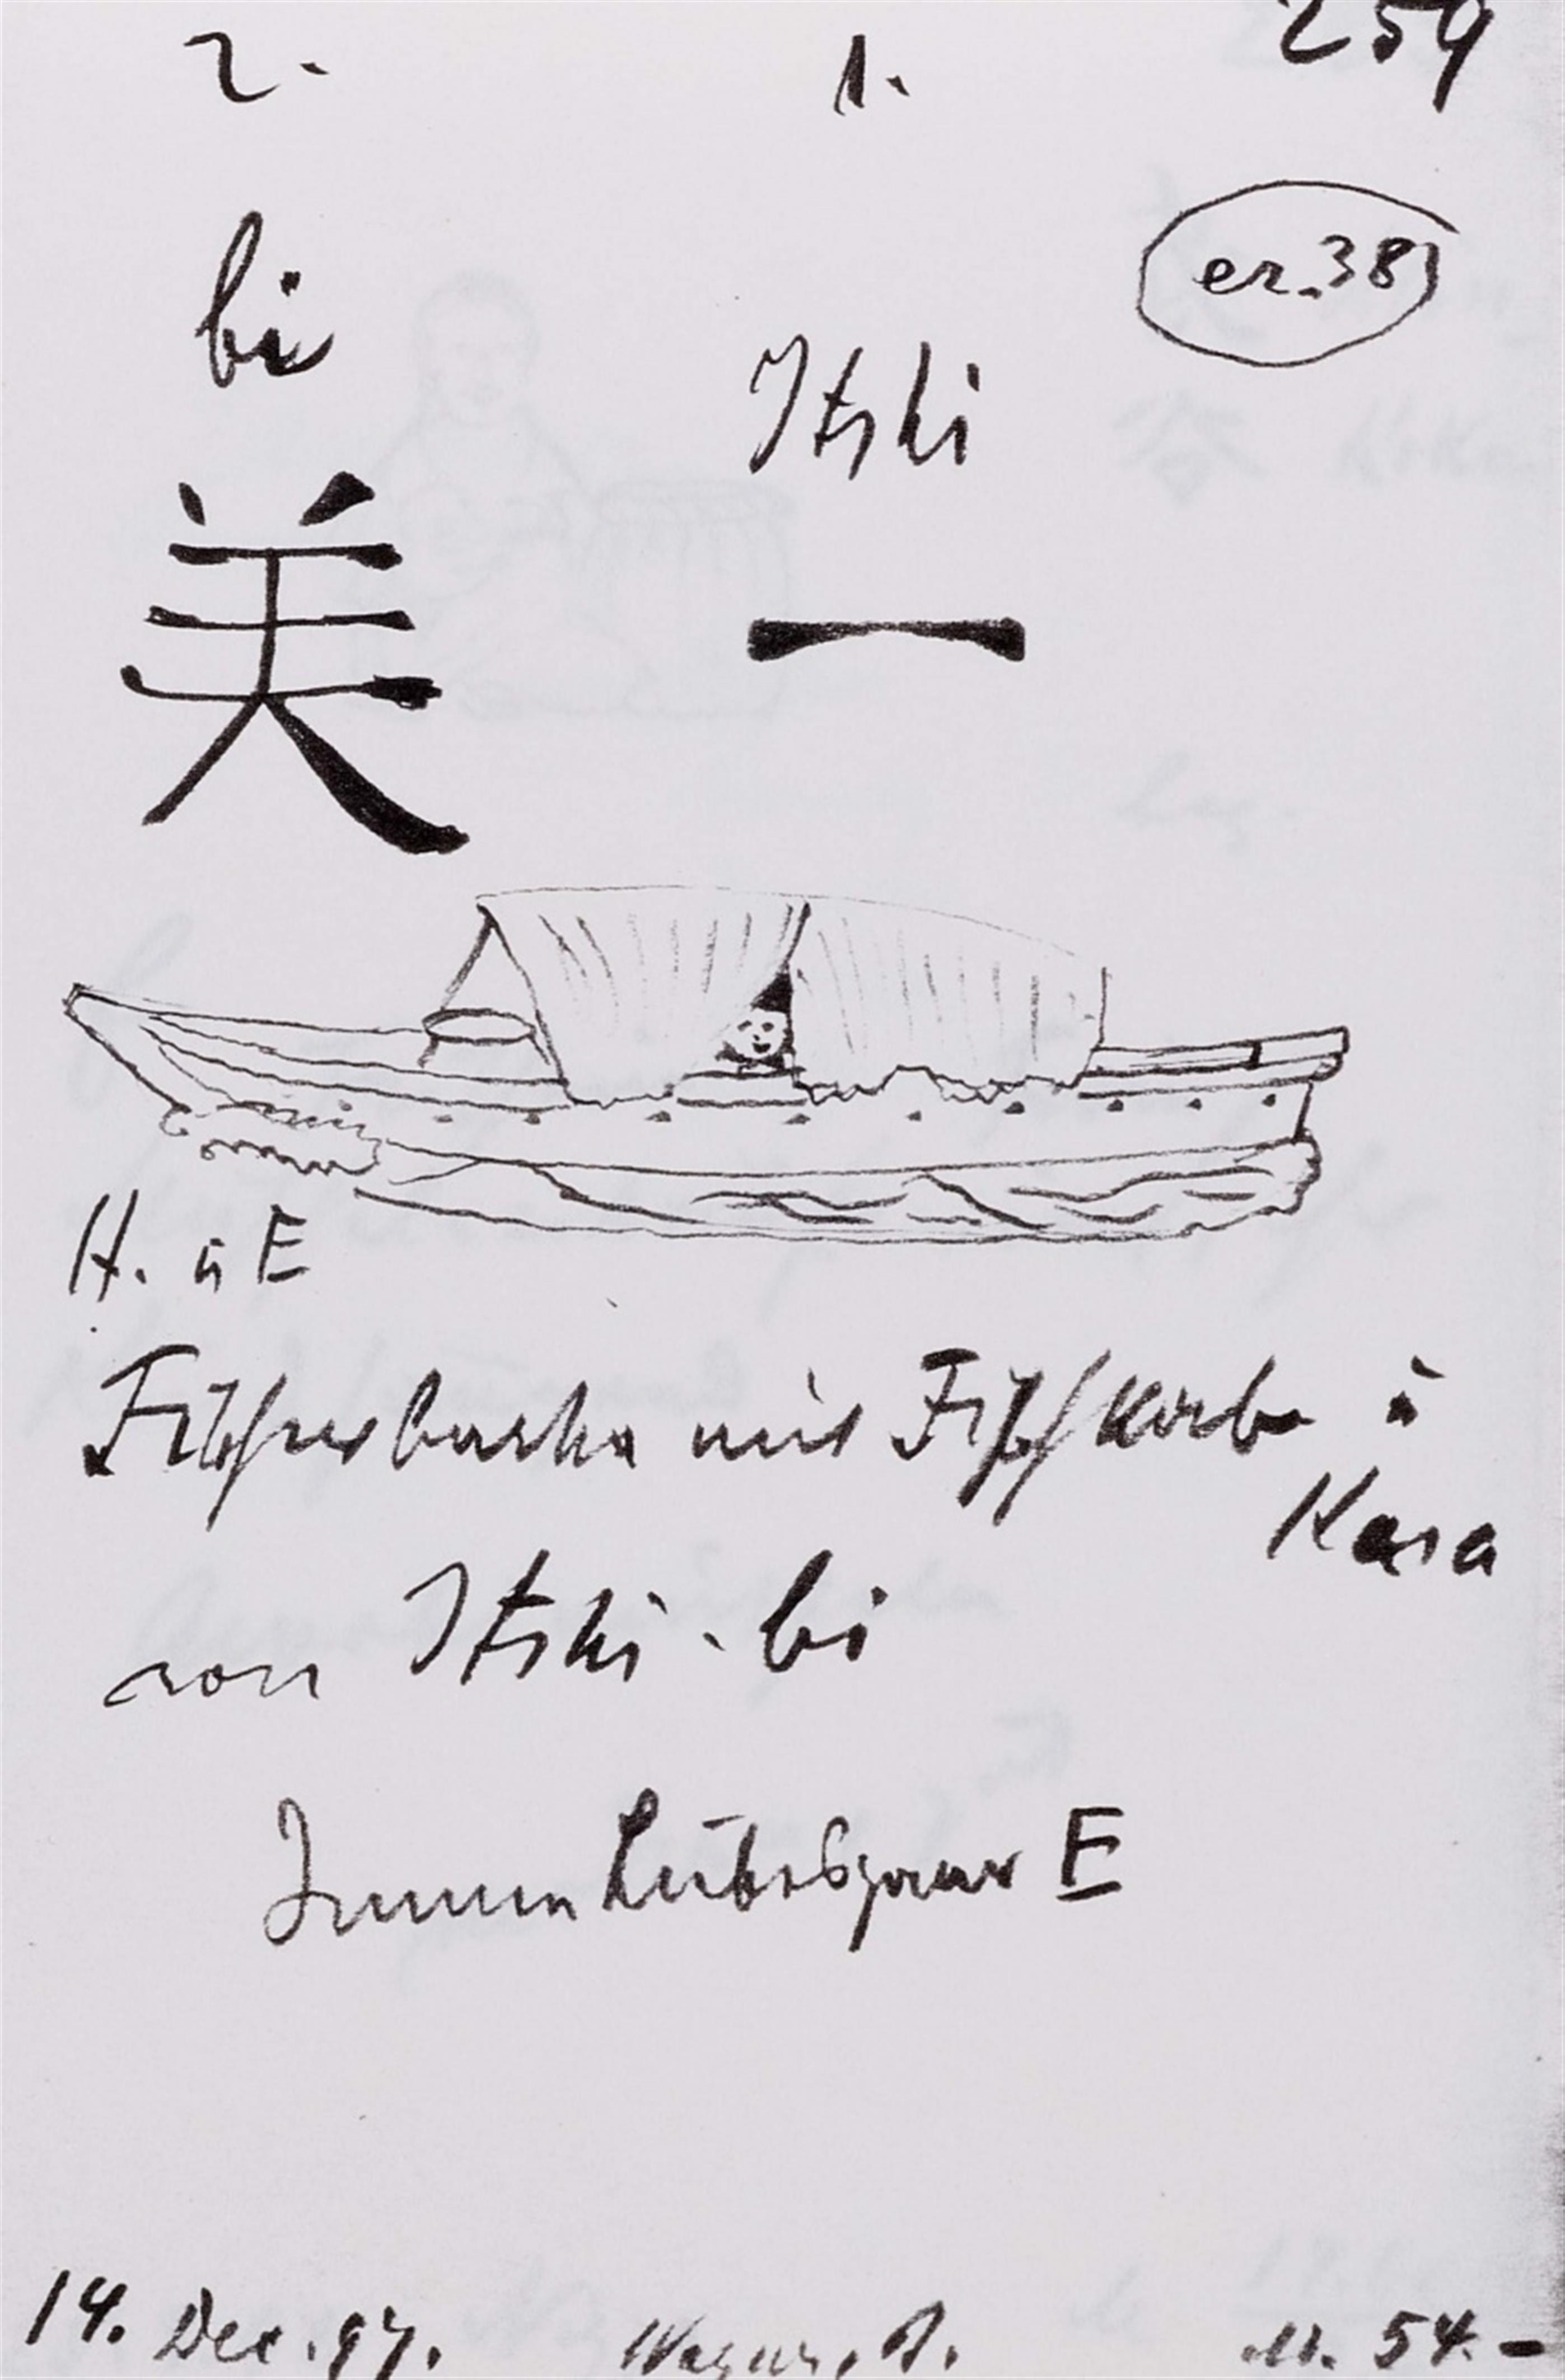 259
2. 1.
er. 38
bi
Itshi
美 一
H. u E
Fischerbarke mit Fischkorb u
Kasa
von Itshi-bi
Innen E
14. Dec. 97. Wagner, B. M. 54.-